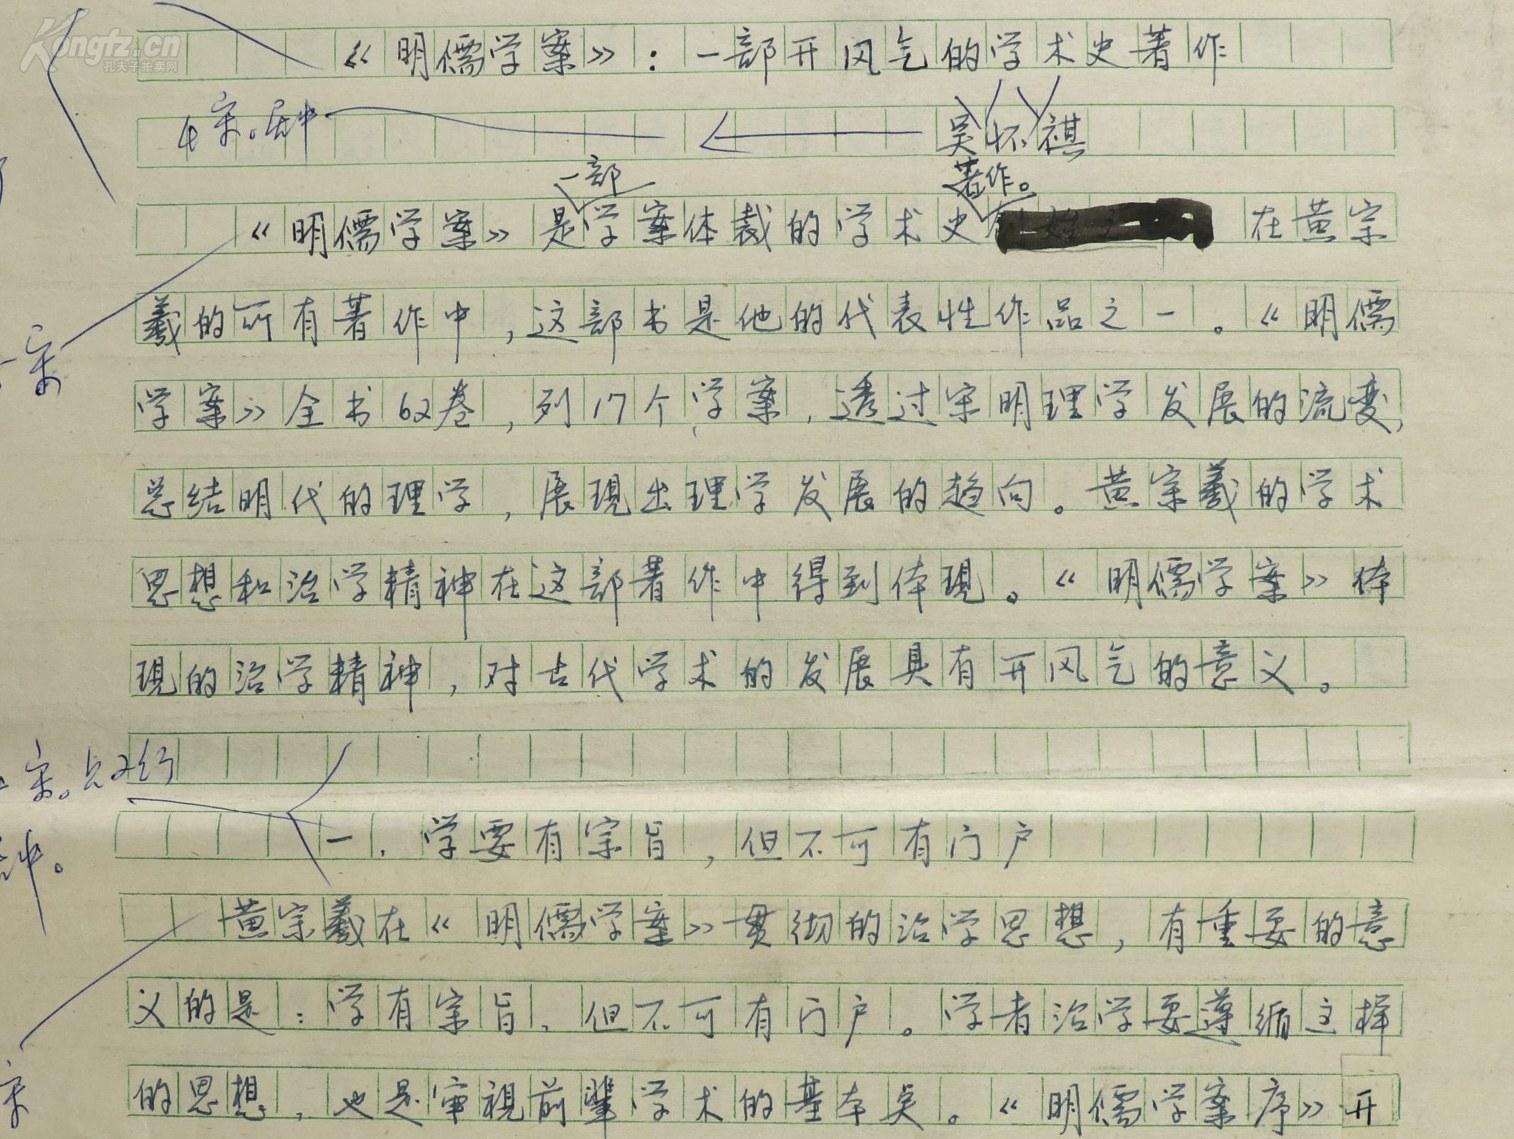 Kongfz.cn
孔夫子拍卖网
《明儒学案》：一部开风气的学术史著作
4宋。居中
吴怀祺
一部
著作。
《明儒学案》是学案体裁的学术史 在黄宗
羲的所有著作中，这部书是他的代表性作品之一。《明儒
学案》全书62卷，列17个学案，透过宋明理学发展的流变，
总结明代的理学，展现出理学发展的趋向。黄宗羲的学术
思想和治学精神在这部著作中得到体现。《明儒学案》体
现的治学精神，对古代学术的发展具有开风气的意义。
宋。占2行
中。
一．学要有宗旨，但不可有门户
黄宗羲在《明儒学案》贯彻的治学思想，有重要的意
义的是：学有宗旨，但不可有门户。学者治学要遵循这样
的思想，也是审视前辈学术的基本点。《明儒学案序》开